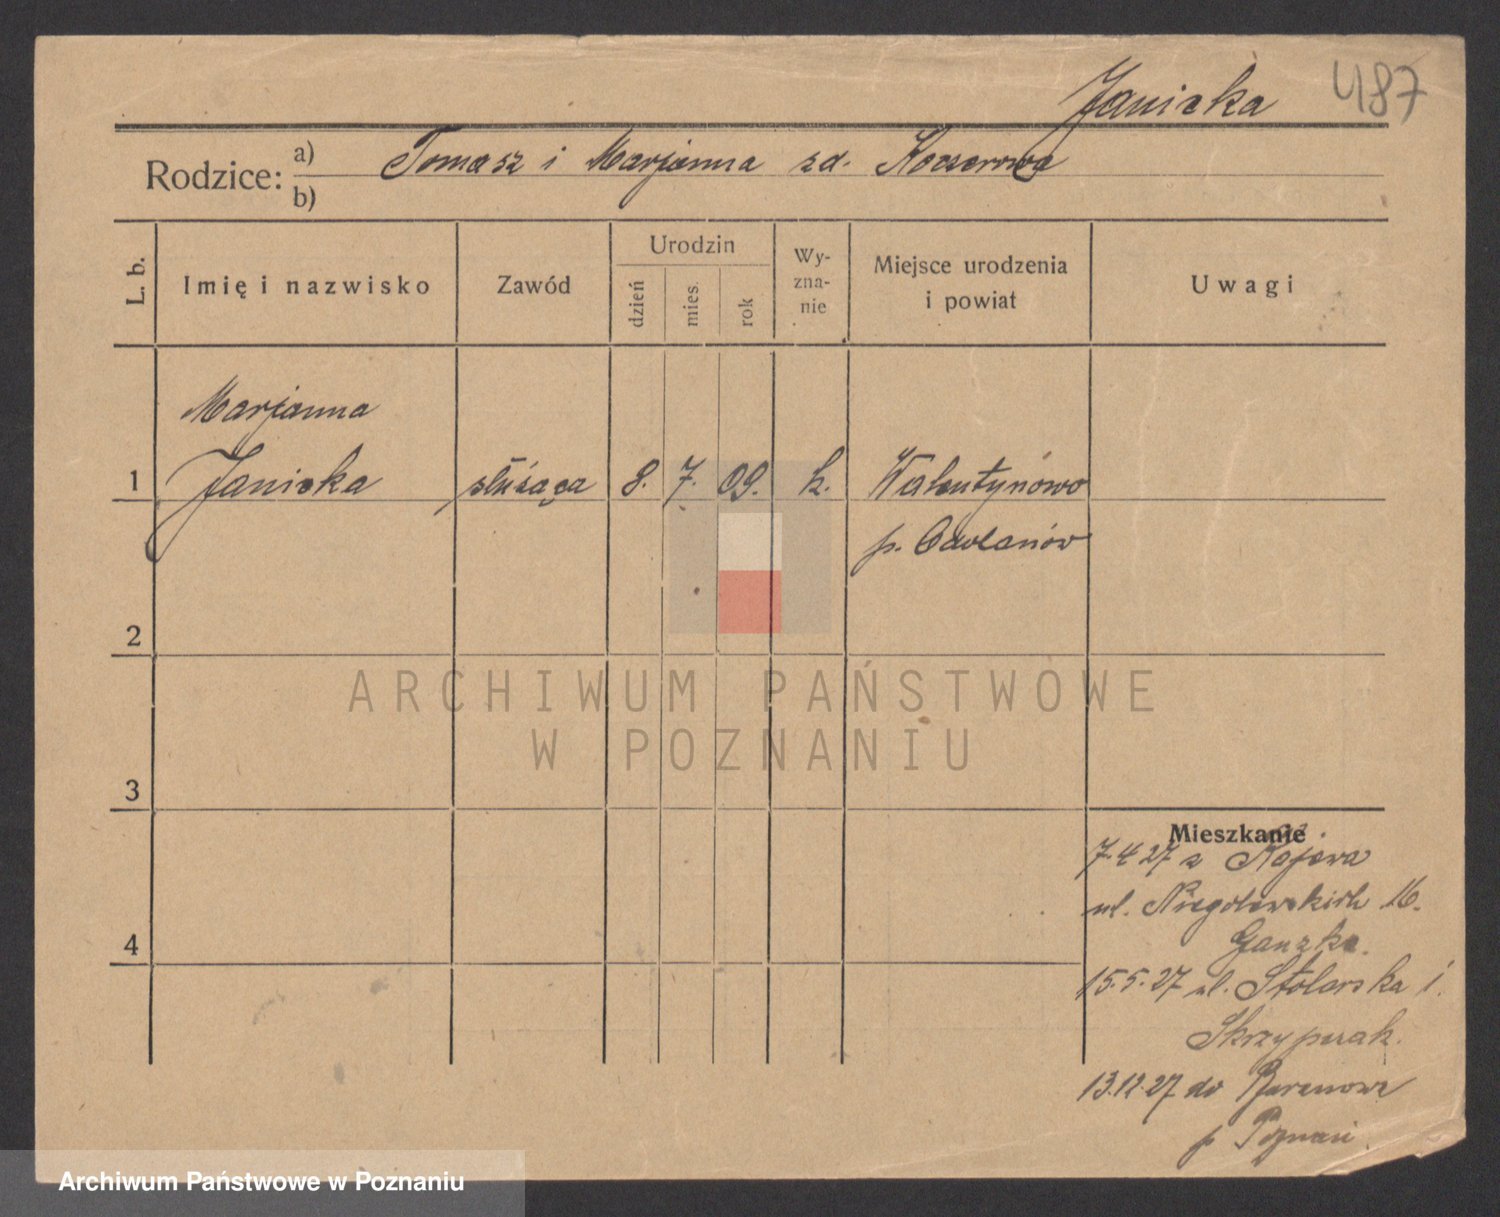 Janicka 487
Rodzice: a) Tomasz i Marjanna zd.
b)
L. b.
Imię i nazwisko
Zawód
Urodzin
dzień
mies.
rok
Wy-
zna-
nie
Miejsce urodzenia
i powiat
Uwagi
Marjanna
1 Janicka służąca 8. 7. 09. k. Walentynowo
p. Odolanów
2
ARCHIWUM PAŃSTWOWE
W POZNANIU
3
Mieszkanie
7.4.27 z
ul. Niegolewskich 16.
15.5.27 ul. Stolarska 1.
Skrzypczak.
13.12.27 do Baranowa
p. Poznań
4
Archiwum Państwowe w Poznaniu